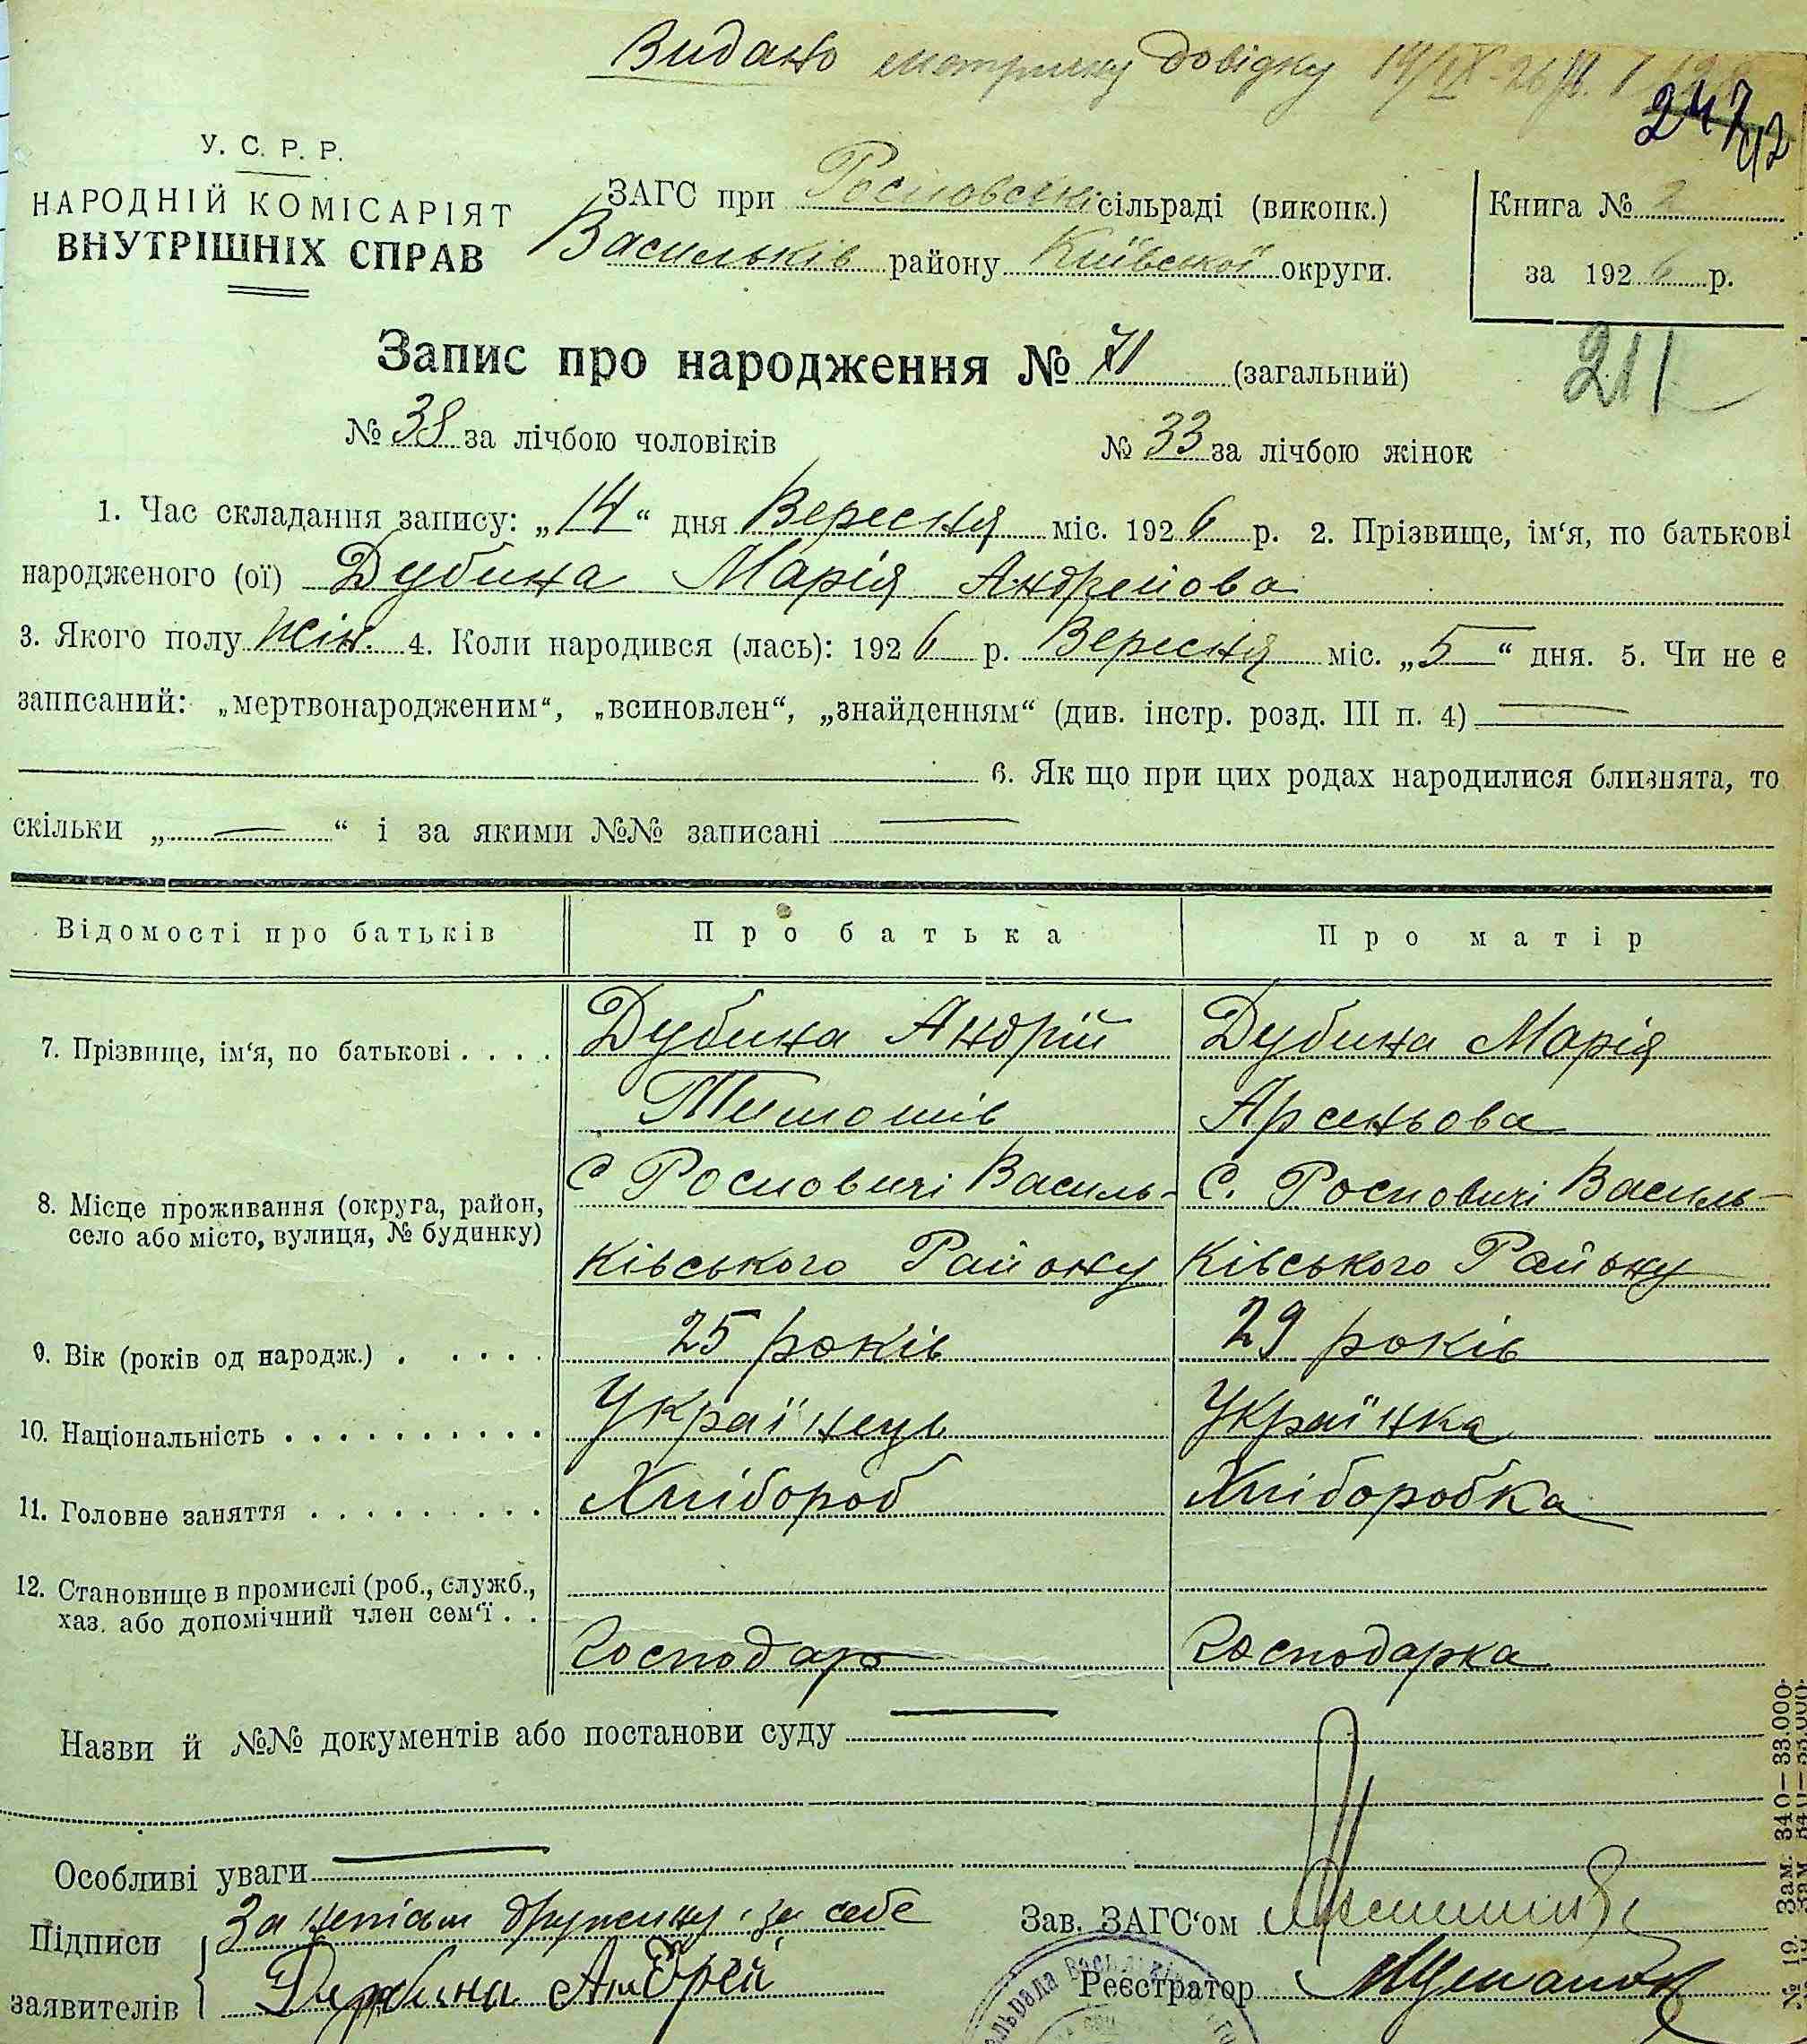 Видано метричну довідку 14/IX-26 р.
247
42
У. С. Р. Р.
НАРОДНІЙ КОМІСАРІЯТ
ВНУТРІШНІХ СПРАВ
ЗАГС при Росновській сільраді (виконк.)
Васильків району Київської округи.
Книга № 2
за 1926 р.
Запис про народження № 71 (загальний)
211
№ 38 за лічбою чоловіків
№ 33 за лічбою жінок
1. Час складання запису: „14“ дня Вересня міс. 1926 р. 2. Прізвище, ім‘я, по батькові
народженого (ої) Дубина Марія Андрейова
3. Якого полу жін. 4. Коли народився (лась): 1926 р. Вересня міс. „5“ дня. 5. Чи не є
записаний: „мертвонародженим“, „всиновлен“, „знайденням“ (див. інстр. розд. III п. 4) —
6. Як що при цих родах народилися близнята, то
скільки „—“ і за якими №№ записані —
Відомості про батьків
Про батька
Про матір
7. Прізвище, ім‘я, по батькові . . . .
Дубина Андрій
Тимошів
Дубина Марія
Арсеньова
8. Місце проживання (округа, район,
село або місто, вулиця, № будинку)
С Росновичі Василь-
ківського Району
С. Росновичі Василь-
ківського Району
9. Вік (років од народж.) . . . . .
25 років
29 років
10. Національність . . . . . . . . . .
Українець
Українка
11. Головне заняття . . . . . . . . .
Хлібороб
Хліборобка
12. Становище в промислі (роб., служб.,
хаз. або допомічний член сем‘ї . .
Господар
Господарка
Назви й №№ документів або постанови суду —
Особливі уваги —
Підписи
заявителів
За дружину і за себе
Дубина Андрей
Зав. ЗАГС‘ом
Реєстратор
№ 19. Зам. 340—33.000